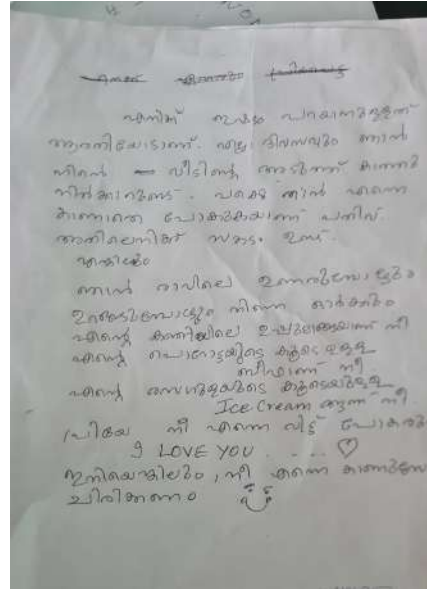 എനിക്ക് ഇഷ്ടം പറയാനുള്ളത്
ആവണിയോടാണ്. എല്ലാ ദിവസവും ഞാൻ
നിന്റെ വീടിന്റെ അടുത്ത് കാത്തു
നിൽക്കാറുണ്ട്. പക്ഷെ നീ എന്നെ
കാണാതെ പോകുകയാണ് പതിവ്.
അതിലെനിക്ക് സങ്കടം ഉണ്ട്.
എങ്കിലും
ഞാൻ രാവിലെ ഉണരുമ്പോഴും
ഉറങ്ങുമ്പോഴും നിന്നെ ഓർക്കും
എന്റെ കഞ്ഞിയിലെ ഉപ്പാണ് നീ
എന്റെ പൊറോട്ടയുടെ കൂടെ ഉള്ള
ബീഫാണ് നീ.
എന്റെ രസഗുളയുടെ കൂടെയുള്ള
Ice Cream ആണ് നീ.
പ്രിയേ നീ എന്നെ വിട്ട് പോകരു
I LOVE YOU . . . .
ഇനിയെങ്കിലും, നീ എന്നെ കാണുമ്പോ
ചിരിക്കണം